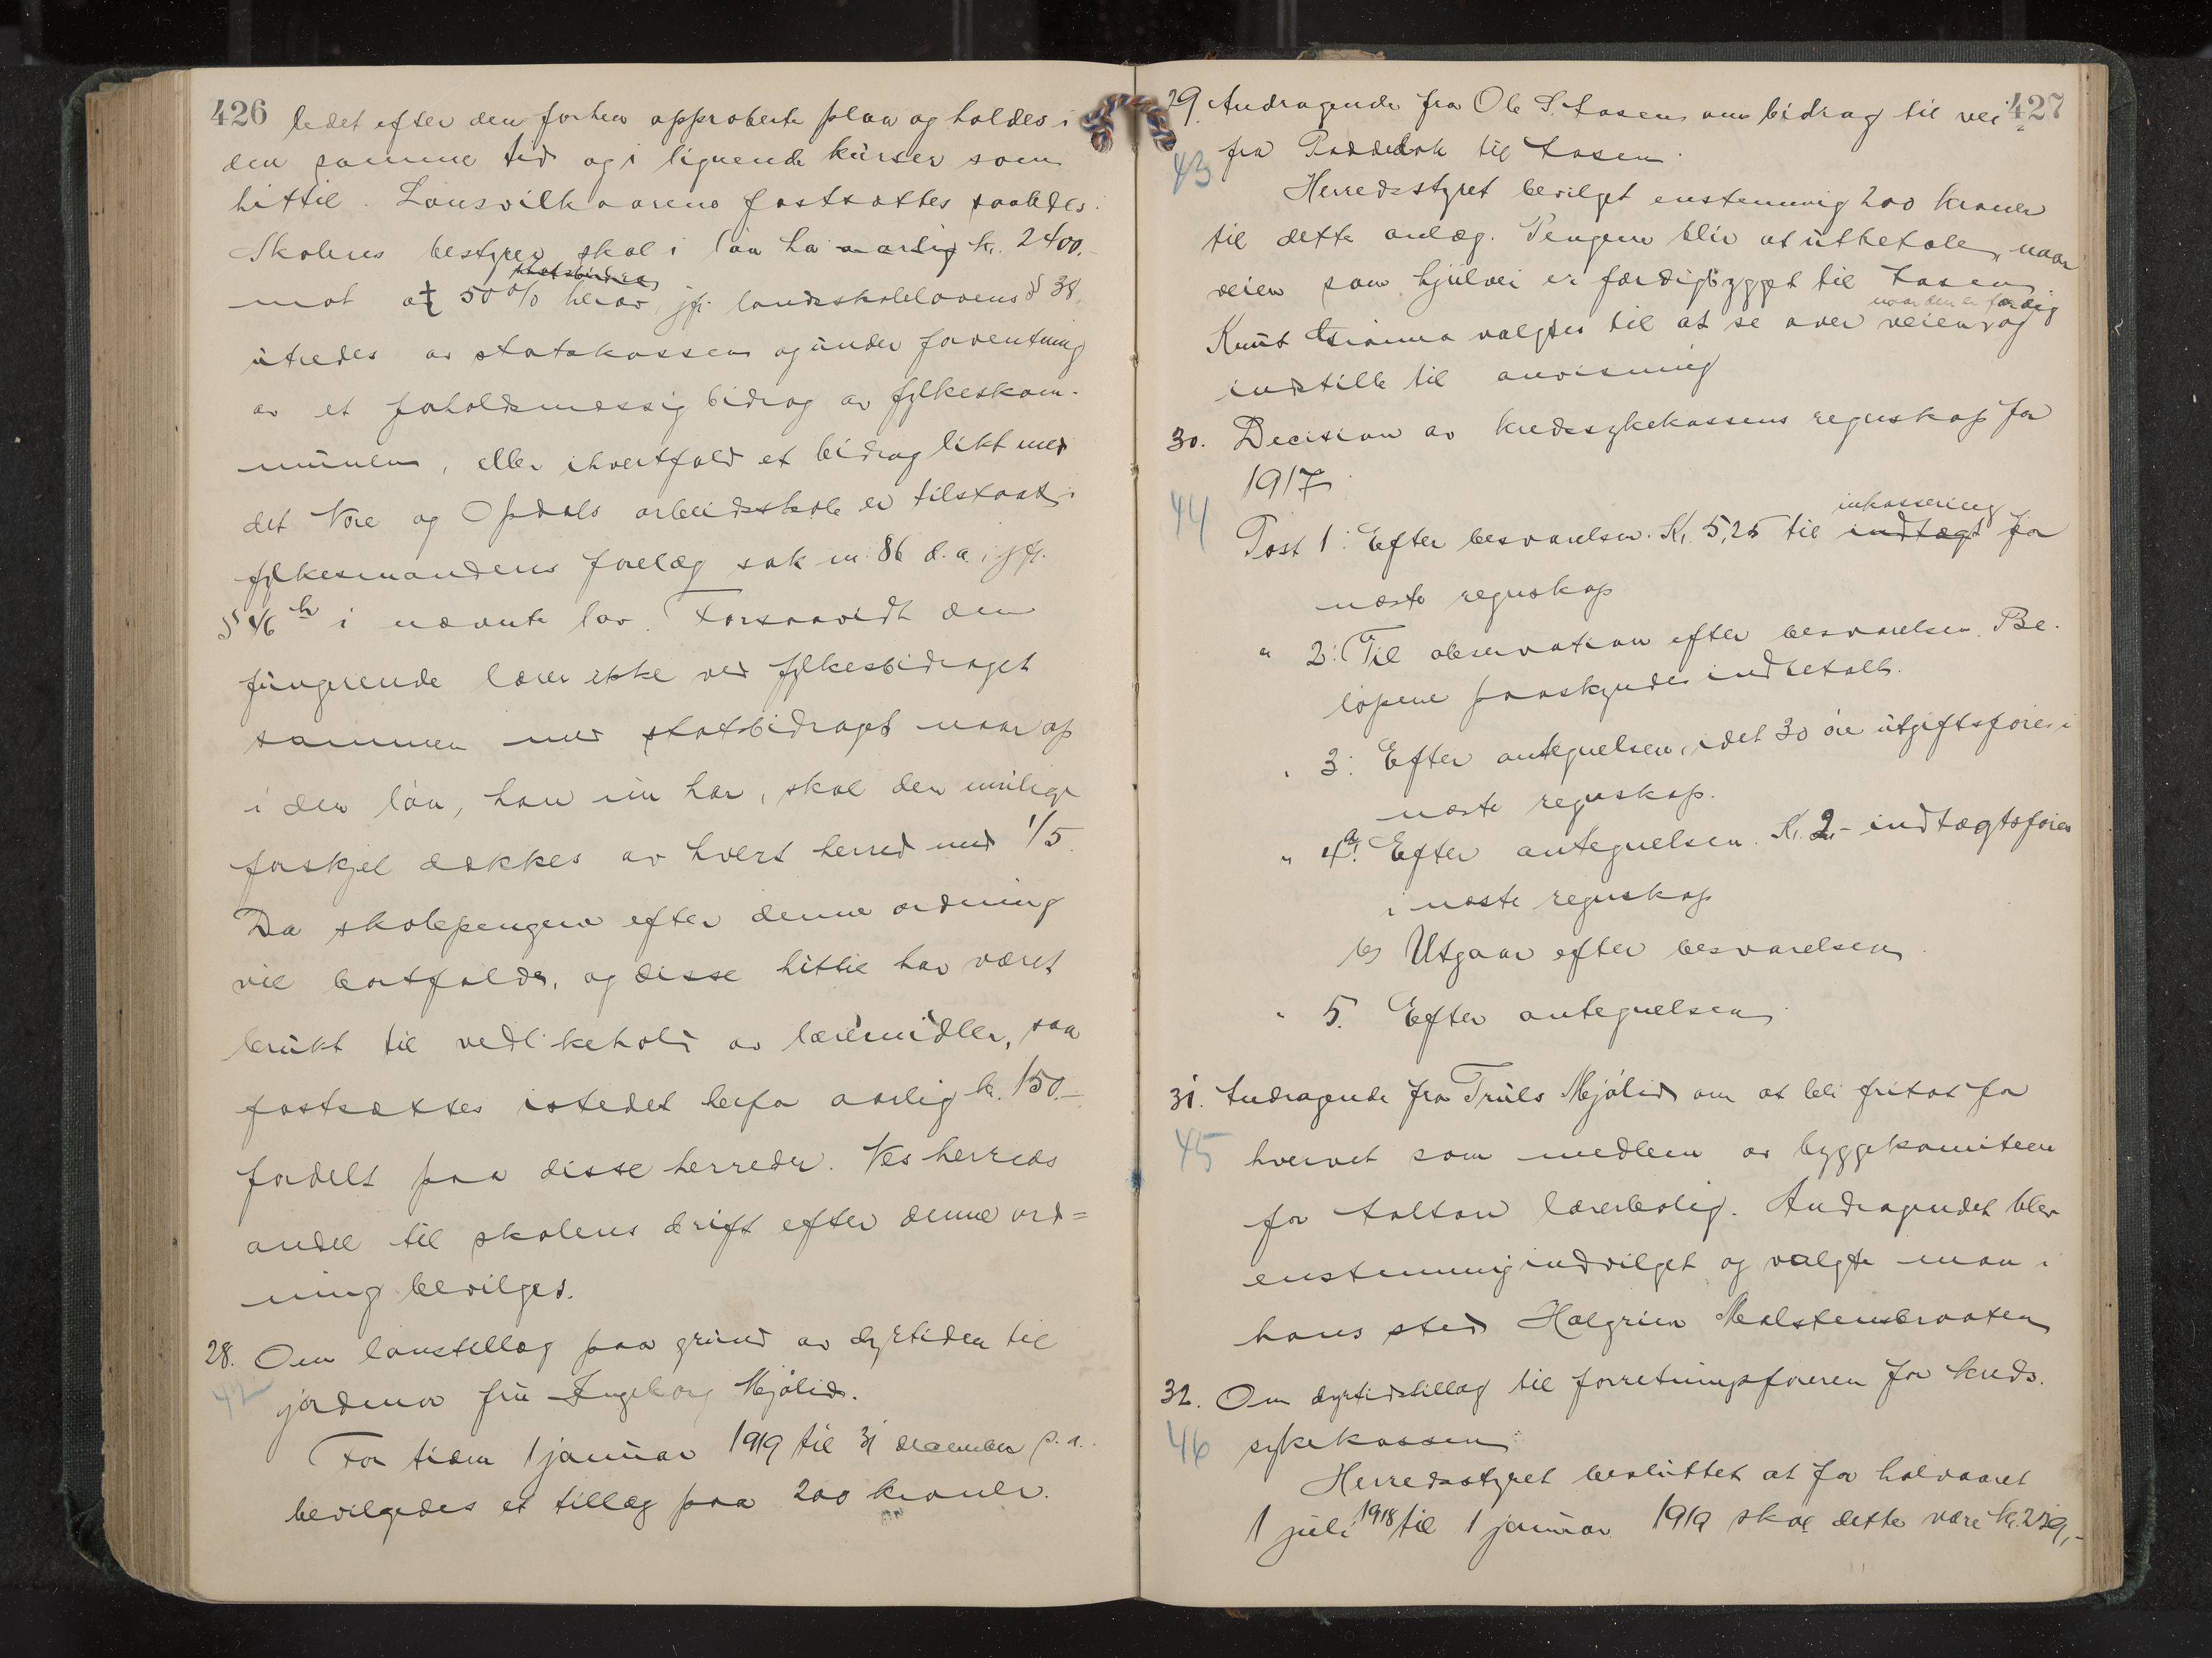 426
ledet efter den forhen approberte plan og holdes i
den samme tid og i lignende kurser som
hittil. Lønsvilkaarene fastsættes saaledes:
Skolens bestyrer skal i løn ha aarlig kr. 2400.-
statsbidrag
mot at 50% herav, jfr. landsskolelovens § 38,
utredes av statskassen og under forventning
av et forholdsmæssig bidrag av fylkeskom-
munen, eller ihvertfald et bidrag likt med
det Nore og Opdals arbeidsskole er tilstaat i
fylkesmandens forelæg sak nr 86 d.a. jfr.
§ 46 h i nævnte lov. Forsaavidt den
fungerende lærer ikke ved fylkesbidraget
sammen med statsbidraget naar op
i den løn, han nu har, skal den mulige
forskjel dækkes av hvert herred med 1/5.
Da skolepengene efter denne ordning
vil bortfalde, og disse hittil har været
brukt til vedlikehold av læremidler, saa
fastsættes istedet herfor aarlig kr. 150.-
fordelt paa disse herreder. Nes herreds
andel til skolens drift efter denne ord=
ning bevilges.
28. Om lønstillæg paa grund av dyrtiden til
42 jordmor fru Ingeborg Mjølid.
For tiden 1 januar 1919 til 31 december s.a.
bevilgedes et tillæg paa 200 kroner.
427
29. Andragende fra Ole S. Lasen om bidrag til vei
43 fra til Lasen.
Herredsstyret bevilget enstemmig 200 kroner
til dette anlæg. Pengene blir at utbetale, naar
veien som hjulvei er færdigbygget til Lasen.
naar den er færdig
Knut valgtes til at se over veien og
indstille til anvisning
30. Decision av kredssykekassens regnskap for
1917.
44 inkassering
Post 1: Efter besvarelsen. Kr. 5,25 til indtægt for
næste regnskap
" 2: Til observation efter besvarelsen. Be-
løpene paaskyndes indbetalt.
" 3: Efter antegnelsen, idet 30 øre utgiftsføres i
næste regnskap.
" 4 a: Efter antegnelsen. Kr. 2,- indtægtsføres
i næste regnskap
b) Utgaar efter besvarelsen.
" 5. Efter antegnelsen
31. Andragende fra Truls Mjølid om at bli fritat for
45 hvervet som medlem av byggekomiteen
for lærerbolig. Andragendet blev
enstemmig indvilget og valgte man i
hans sted Halgrim
32. Om dyrtidstillæg til forretningsføreren for kreds-
46 sykekassen.
Herredsstyret besluttet at for halvaaret
1 juli 1918 til 1 januar 1919 skal dette være kr. 239,-